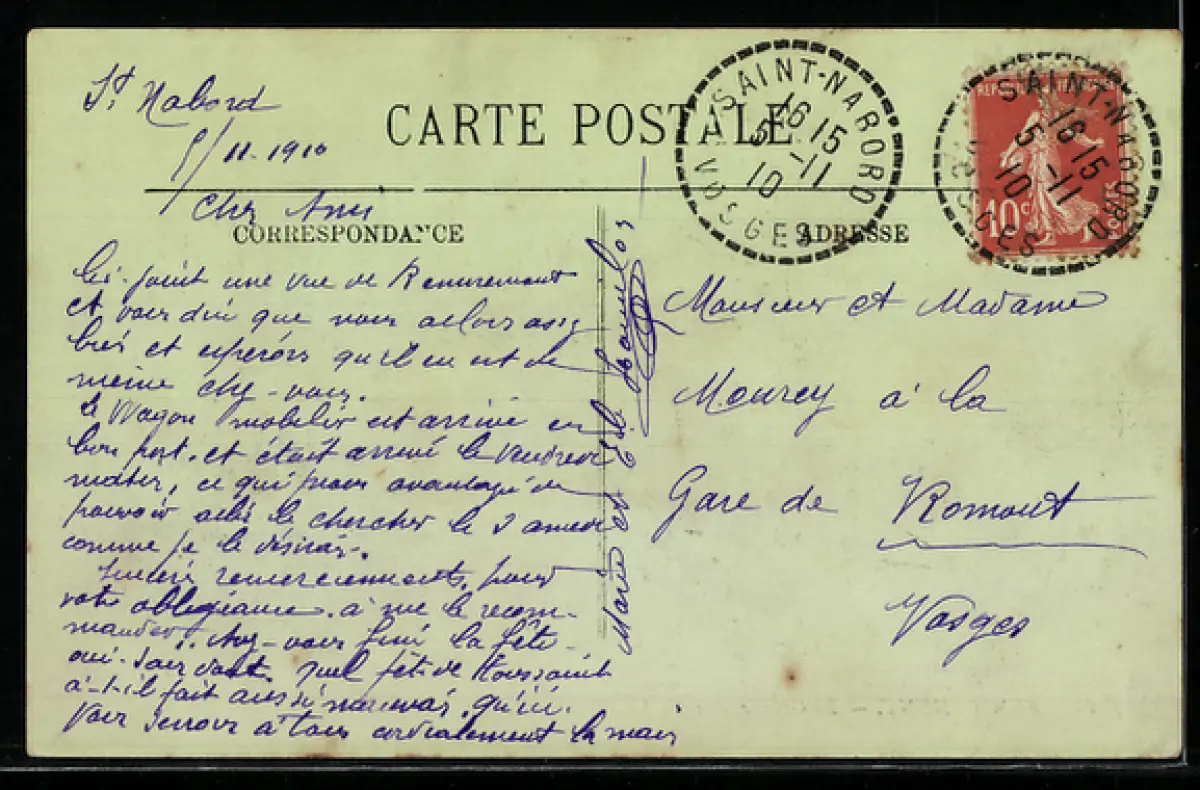 St. Nabord
5/11-1910
CARTE POSTALE
Cher Amis
CORRESPONDANCE
ADRESSE
SAINT-NABORD
16 15
5 -11
10
VOSGES
SAINT-NABORD
16 15
5 -11
10
VOSGES
10c
Ci-joint une vue de Remiremont
et vous dire que nous allons assez
bien et espérons qu'il en est de
meme chez-vous.
Le Wagon mobilier est arrivé en
bon port. et était arrivé le vendredi
matin, ce qui
pouvoir aller le chercher le
comme je le désirais.
remerciements. pour
votre obligeance. à me le recom-
mander. Avez-vous fini la fête
fête de Toussaint
a-t-il fait aussi mauvais. qu'ici.
Vous serrons à tous cordialement la main
Marie et
Monsieur et Madame
Mourey à la
Gare de Romont
Vosges